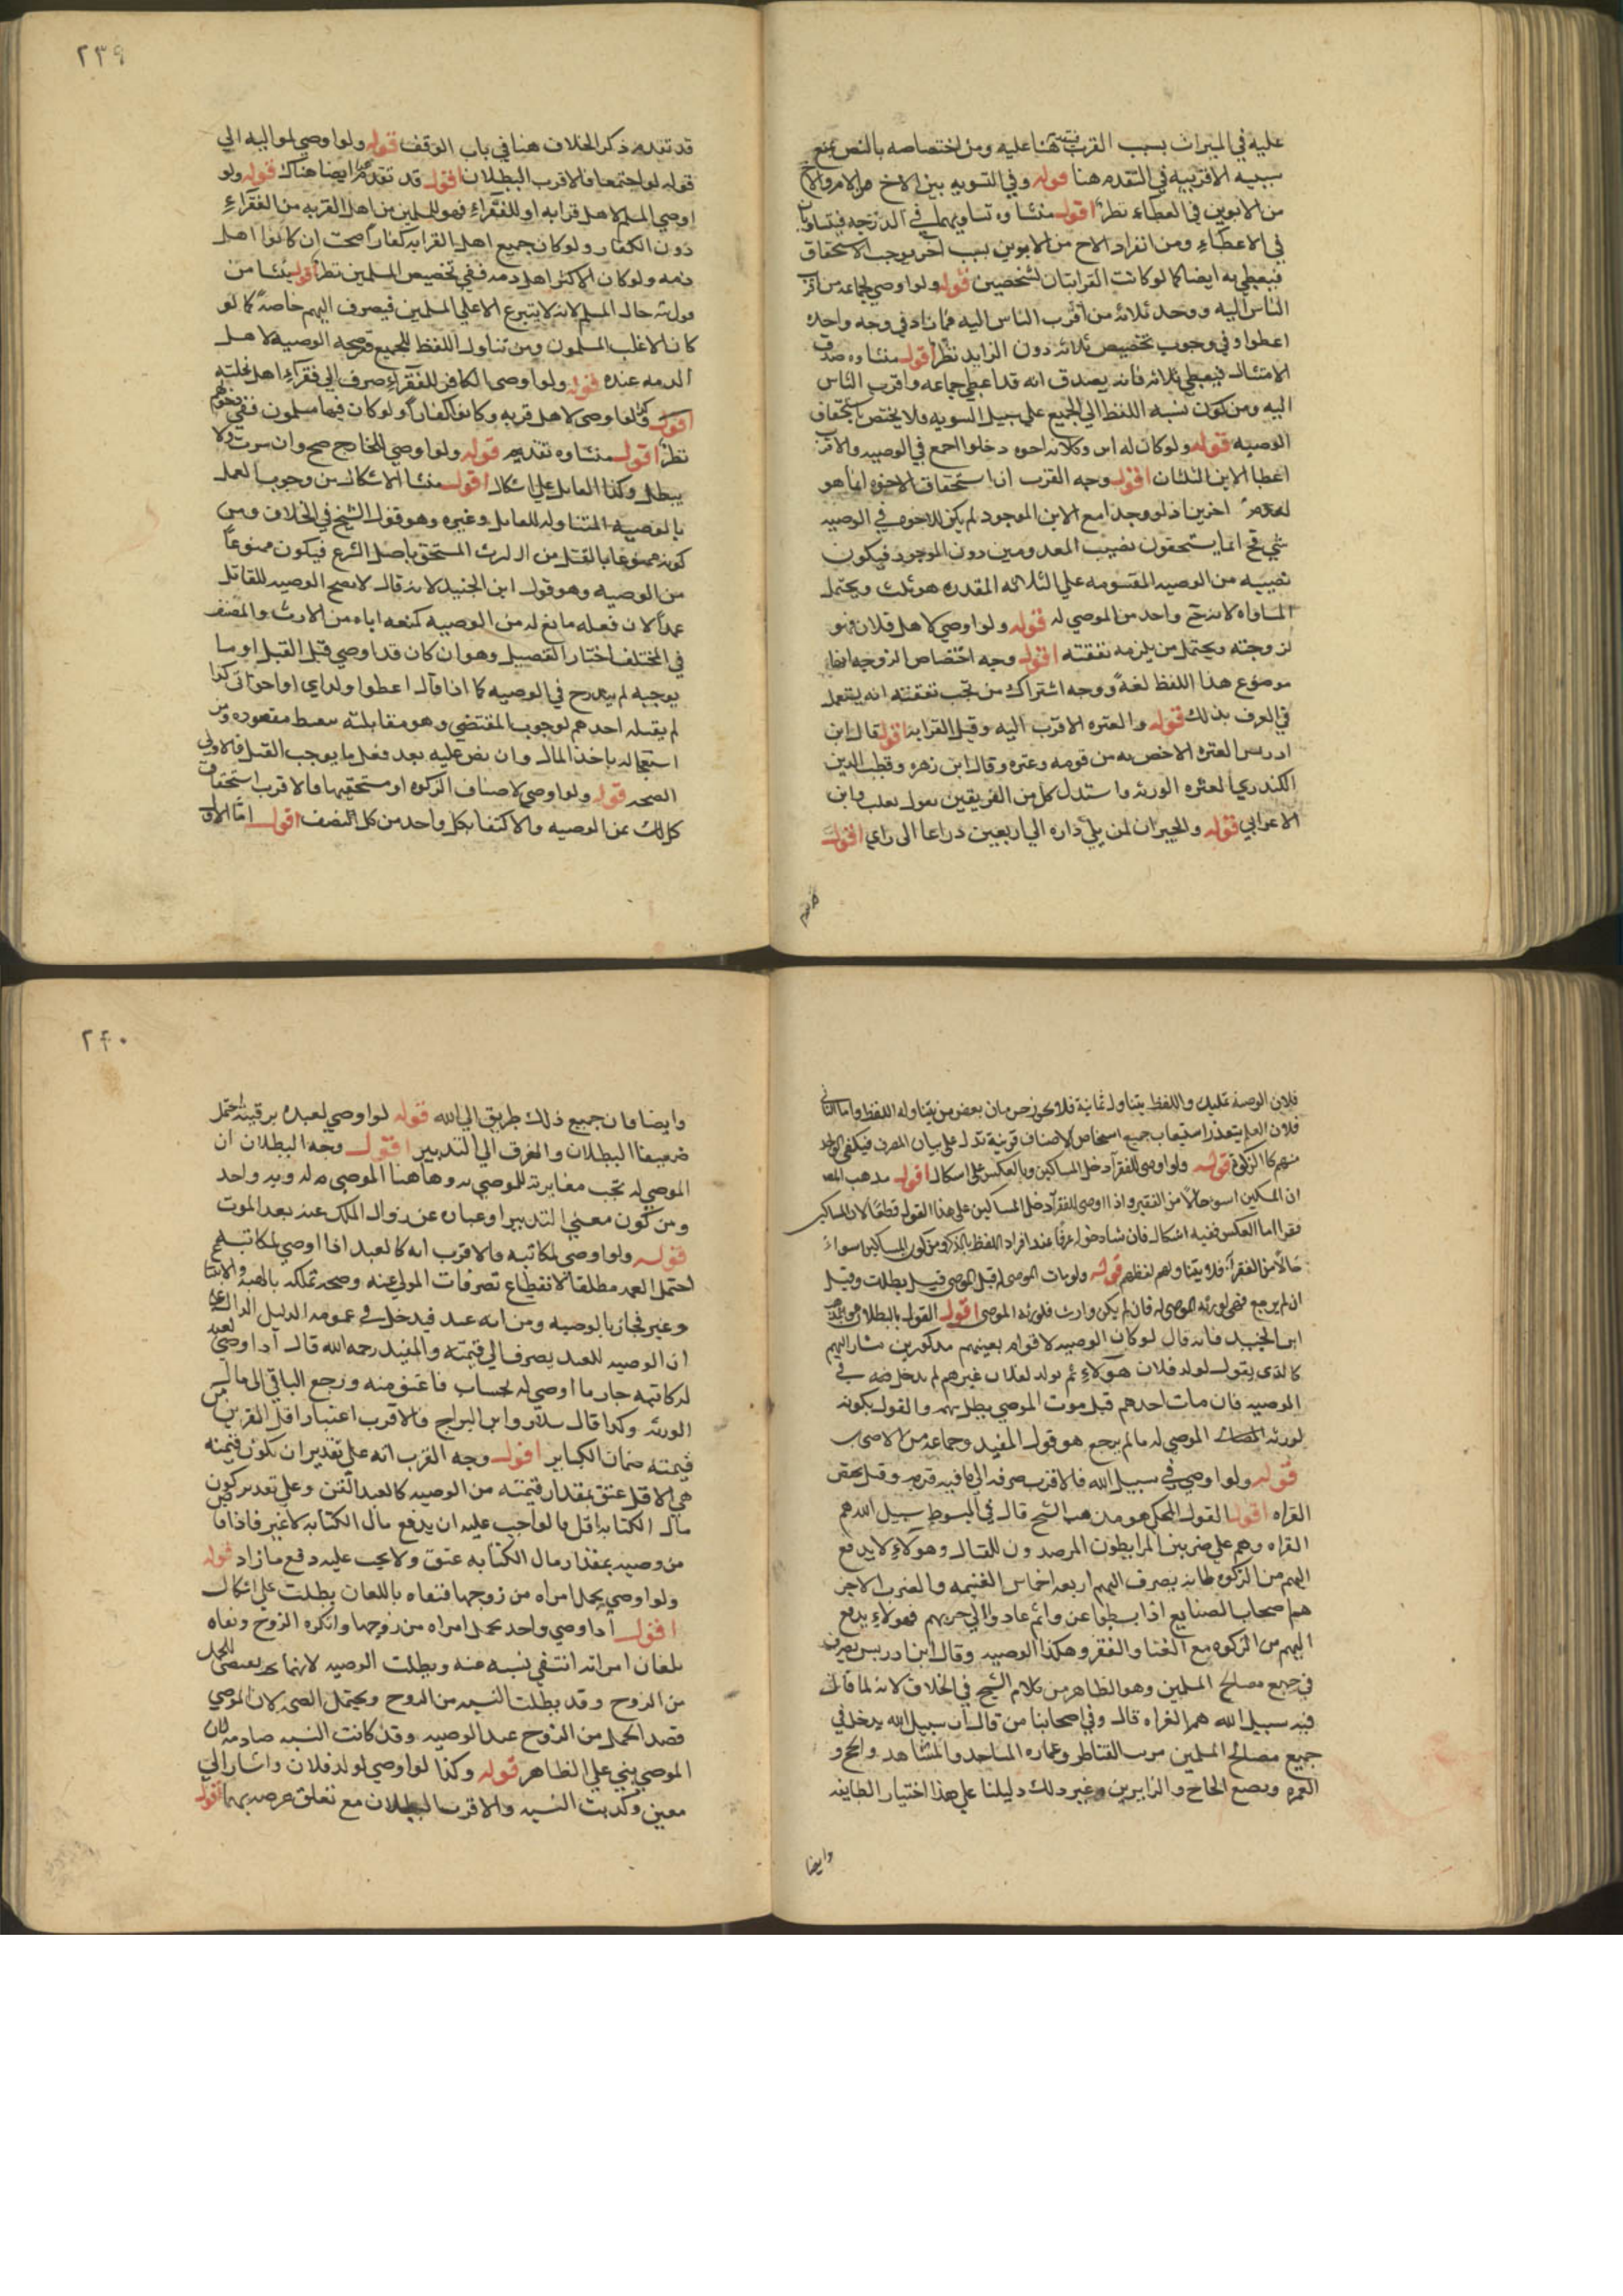 عليه في الميراث بسبب القرب هنا عليه ومن اختصاصه بالنص يمنع
سببيه الاقربيه في التقدم هنا قوله وفي التسويه بين الاخ من الام والاخ
من الابوين في العطاء نظر اقول منشاوه تساويهما في الدرجه فيتساويان
في الاعطاء ومن انفراد الاخ من الابوين بسبب اخر يوجب الاستحقاق
فيعطي به ايضا كما لو كانت القرابتان لشخصين قوله ولو اوصي لجماعه من اقرب
الناس اليه ووجد ثلاثه من اقرب الناس اليه فما زاد في وجه واحده
اعطوا وفي وجوب تخصيص ثلاثه دون الزايد نظر اقول منشاوه صدق
الامتثال فيعطي ثلاثه فانه يصدق انه قد اعطي جماعه واقرب الناس
اليه ومن كون نسبه اللفظ الي الجميع علي سبيل السويه فلا يختص باستحقاق
الوصيه قوله ولو كان له ابن وثلاثه اخوه دخلوا اجمع في الوصيه والاقرب
اعطا الابن الثلثان اقول وجه القرب ان استحقاق الاخوه انما هو
اخرين اذ لو وجد امع الابن الموجود لم يكن للاخوه في الوصيه
شي فح انما يستحقون نصيب المعدومين دون الموجود فيكون
نصيبه من الوصيه المقسومه علي الثلاثه المقدره هو ثلث ويحتمل
المساواه لانه ح واحد من الموصي له قوله ولو اوصي لاهل فلان فهو
لزوجته ويحتمل من يلزمه نفقته اقول وجه اختصاص الزوجه انها
موضوع هذا اللفظ لغة ووجه اشتراك من تجب نفقته انه يستعمل
في العرف بذلك قوله والعتره الاقرب اليه وقيل القرابه اقول قال ابن
ادريس العتره الاخص به من قومه وعتره وقال ابن زهره وقطب الدين
الكندري العتره الورثه واستدل كل من الفريقين بقول ثعلب وابن
الاعرابي قوله والجيران لمن يلي داره الي اربعين ذراعا الى راي اقول
قد تقدم
قد تقدم ذكر الخلاف هنا في باب الوقف قوله ولو اوصي لمواليه الي
قوله لو اجتمعا فالاقرب البطلان اقول قد تقدم ايضا هناك قوله ولو
اوصي المسلم لاهل قرابه او للفقراء فهو للمسلمين من اهل القريه من الفقراء
دون الكفار ولو كان جميع اهل القرابه كفارا صحت ان كانوا اهل
ذمه ولو كان الاكثر اهل ذمه ففي تخصيص المسلمين نظر اقول ينشا من
دلاله حال المسلم لانه لا يتبرع الا علي المسلمين فيصرف اليهم خاصة كما لو
كان الاغلب المسلمون ومن تناول اللفظ للجميع وصحه الوصيه لاهل
الذمه عنده قوله ولو اوصي الكافر للفقراء صرف الي فقراء اهل نحلته
اقول وكذا لو اوصى لاهل قريه وكانوا كفارا ولو كان فيها مسلمون ففي دخولهم
نظر اقول منشاوه تقديم قوله ولو اوصي للخارج صح وان سرت ولا
يبطل وكذا القاتل علي اشكال اقول منشا الاشكال من وجوب العمل
بالوصيه المتناوله للعامل وغيره وهو قول الشيخ في الخلاف ومن
كونه ممنوعا بالقتل من الارث المستحق باصل الشرع فيكون ممنوعا
من الوصيه وهو قول ابن الجنيد لانه قال لا تصح الوصيه للقاتل
عمدا لان فعله مانع له من الوصيه كمنعه اياه من الارث والمصنف
في المختلف اختار التفصيل وهو ان كان قد اوصي قبل القتل او ما
يوجبه لم يندرج في الوصيه كما اذا قال اعطوا ولداي او اخواتى كذا
لم يقتله احدهم لوجوب المقتضي وهو مقابلته بنقيض مقصوده ومن
استعجاله باخذ المال وان نص عليه بعد فعل ما يوجب القتل فالاولي
الصحه قوله ولو اوصي لاصناف الزكوه او مستحقيها فالاقرب استحقاق
كل ثمن الوصيه والاكتفا بكل واحد من كل النصف اقول اما الاول
فلان الوصية تمليك واللفظ يتناول ثمانية فلا يجوز حرمان بعض من يتناوله اللفظ واما الثاني
فلان العلم يتعذر استيعاب جميع اشخاص الاصناف قرينة تدل علي بيان المصرف فيكفي الواحد
منهم كما الزكوة قوله ولو اوصى للفقرآ دخل المساكين وبالعكس على اشكال اقول مذهب المص
ان المسكين اسوء حالا من الفقير واذا اوصى للفقرآ دخل المساكين على هذا القول قطعا لان المساكين
فقرا اما العكس ففيه اشكال فان شاد خوله عرفا عند افراد اللفظ بالذكر ومن كون المسكين اسواء
حالا من الفقرآ فلا يتناولهم لفظهم قوله ولو مات الموصى له قبل الموصي قيل بطلت وقيل
ان لم يرجع فهي لورثه الموصى له فان لم يكن وارث فلورثه الموصي اقول القول بالبطلان هو مذهب
ابن الجنيد فانه قال لو كان الوصيه لاقوام بعينهم مذكورين مشار اليهم
كالذى يقول لولد فلان هولاء ثم يولد لفلان غيرهم لم يدخل فيه في
الوصيه فان مات احدهم قبل موت الموصي بطل سهمه والقول بكونه
لورثه الموصي له ما لم يرجع هو قول المفيد وجماعه من الاصحاب
قوله ولو اوصي في سبيل الله فالاقرب صرفه الي ما فيه قربه وقيل يختص
الغزاه اقول القول المحكي هو مذهب الشيخ قال في المبسوط سبيل الله هم
الغزاه وهم علي ضربين المرابطون المرصدون للقتال وهولاء لا يدفع
اليهم من الزكوه لانه يصرف اليهم اربعه اخماس الغنيمه والضرب الاخر
هم اصحاب الصنايع اذا نشطوا غزوا ثم عادوا الي حربهم فهولاء يدفع
اليهم من الزكوه مع الغنا والفقر وهكذا الوصيه وقال ابن ادريس يصرف
في جميع مصالح المسلمين وهو الظاهر من كلام الشيخ في الخلاف لانه لما قال
فيه سبيل الله هم الغزاه قال وفي اصحابنا من قال ان سبيل الله يدخل في
جميع مصالح المسلمين من القناطر وعماره المساجد والمشاهد والحج و
العمره ونفع الحاج والزايرين وغير ذلك دليلنا علي هذا اختيار الطايفه
وايضا
وايضا فان جميع ذلك طريق الي الله قوله لو اوصي لعبده برقبته احتمل
ضعيفا البطلان والصرف الي التدبير اقول وجه البطلان ان
الموصي له تجب مغايرته للموصي به وها هنا الموصي له وبه واحد
ومن كون معني التدبير او عباره عن زوال الملك عنه بعد الموت
قوله ولو اوصي لمكاتبه فالاقرب انه كالعبد اذا اوصي لمكاتب غيره
احتمل الصحه مطلقا لانقطاع تصرفات المولي عنه وصحه تملكه بالهبه والابتياع
وغيره فجاز بالوصيه ومن انه عبد فيدخل في عموم الدليل الدال علي
ان الوصيه للعبد يصرف الي قيمته والمفيد رحمه الله قال اذا اوصي لعبد
له كاتبه جاز ما اوصي له بحساب ما عتق منه ورجع الباقي الي مال
الورثه وكذا قال سلار وابن البراج والاقرب اعتبار اقل الامرين من
قيمته ضمان الكبابر اقول وجه القرب انه علي تقدير ان تكون قيمته
هي الاقل عتق بمقدار قيمته من الوصيه كالعبد القن وعلي تقدير كون
مال الكتابه اقل فالواجب عليه ان يدفع مال الكتابه لا غير فاذا قبض
من وصيه بمقدار مال الكتابه عتق ولا يجب عليه دفع ما زاد قوله
ولو اوصي بحمل امراه من زوجها فنفاه باللعان بطلت علي اشكال
اقول اذا وصي واحد بحمل امراه من زوجها وانكره الزوج ونفاه
بلعان امراته انتفي نسبه عنه وبطلت الوصيه لانها
من الزوج وقد بطلت النسبه من الزوج ويحتمل الصحه لان الموصي
قصد الحمل من الزوج عند الوصيه وقد كانت النسبه صادقه لان
الموصي يبني علي الظاهر قوله وكذا لو اوصي لولد فلان واشار الي
معين وكذبت النسبه والاقرب البطلان مع تعلق غرضه بهما اقول
٢٣٩
٢٤٠